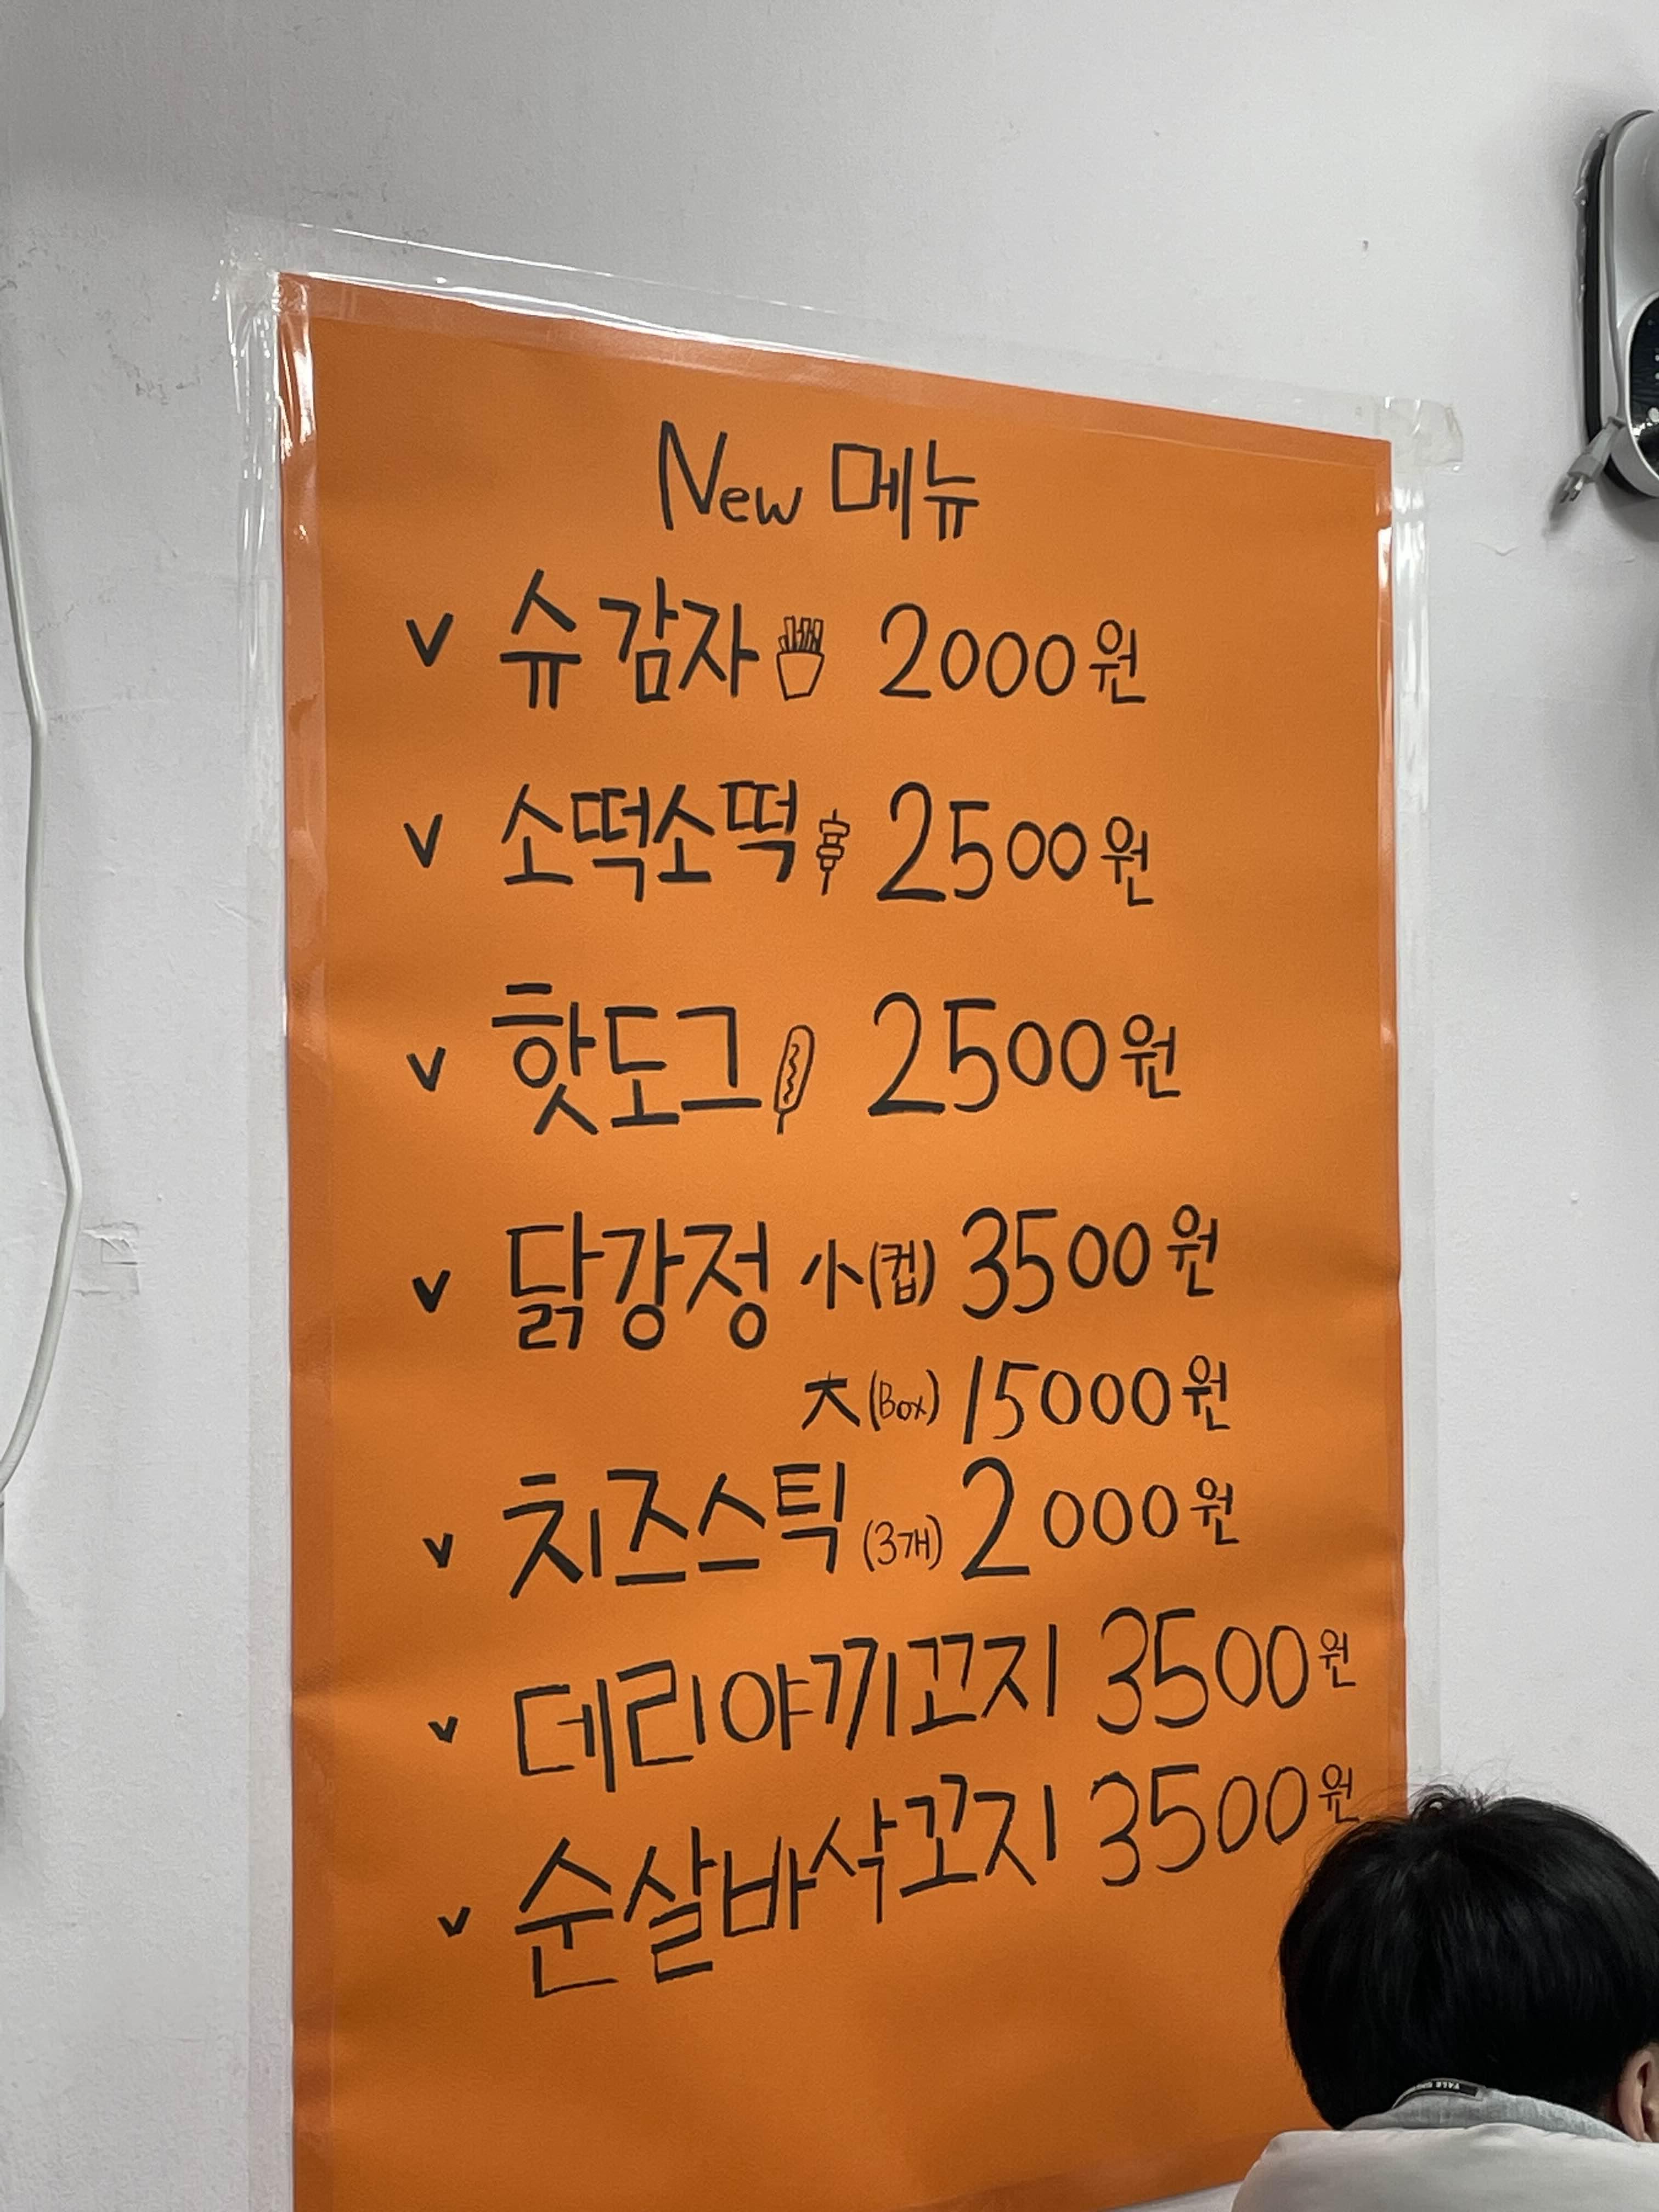 New 메뉴
v 슈감자 2000원
v 소떡소떡 2500원
v 핫도그 2500원
v 닭강정 小(컵) 3500원
大(Box) 15000원
v 치즈스틱 (3개) 2000원
v 데리야끼꼬지 3500원
v 순살바삭꼬지 3500원